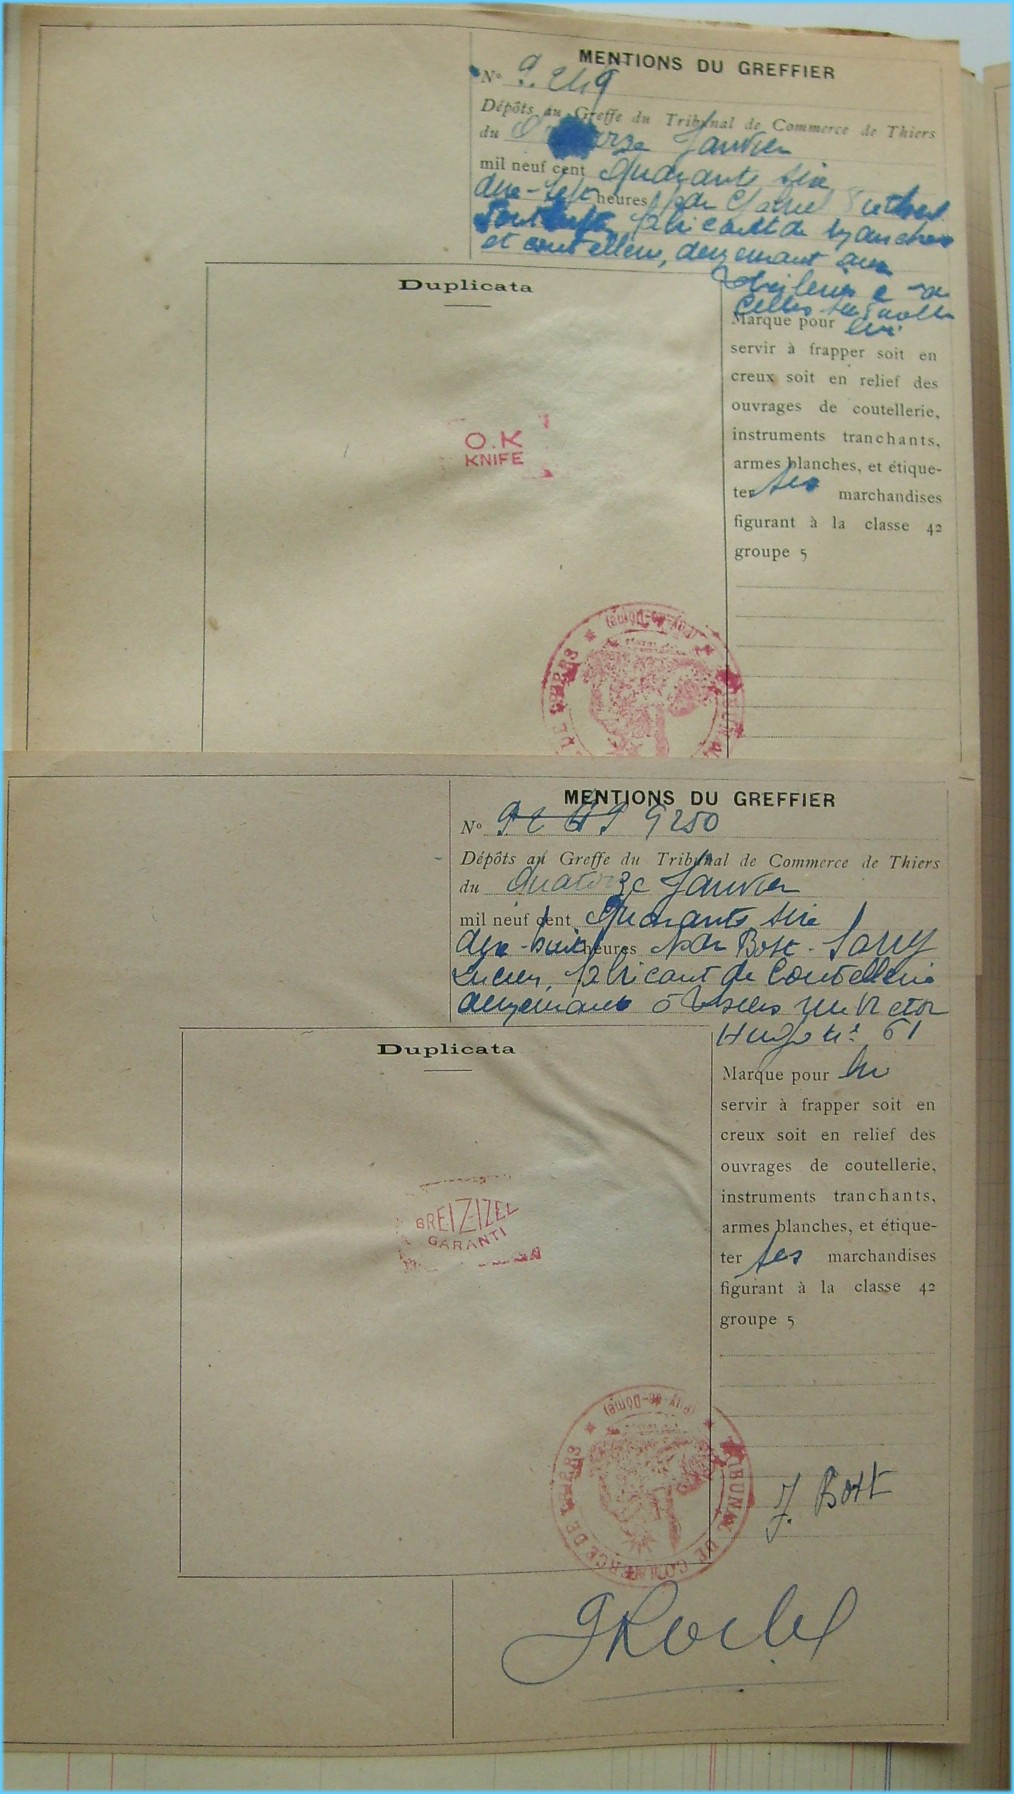 MENTIONS DU GREFFIER
N° 9.249
Dépôts au Greffe du Tribunal de Commerce de Thiers
du Janvier
mil neuf cent quarante six
dix-sept heures par
fabricant de manches
et couteliers, demeurant aux
Celles sur
Duplicata
Marque pour lui
servir à frapper soit en
creux soit en relief des
ouvrages de coutellerie,
instruments tranchants,
armes blanches, et étique-
ter ses marchandises
figurant à la classe 42
groupe 5
O.K
KNIFE
(Puy-de-Dôme)
DE THIERS
MENTIONS DU GREFFIER
N° 9250
Dépôts au Greffe du Tribunal de Commerce de Thiers
du Quatorze Janvier
mil neuf cent Quarante six
dix-huit heures par Bost
Lucien, fabricant de Coutellerie
demeurant à Victor
Hugo n° 61
Duplicata
Marque pour lui
servir à frapper soit en
creux soit en relief des
ouvrages de coutellerie,
instruments tranchants,
armes blanches, et étique-
ter ses marchandises
figurant à la classe 42
groupe 5
BREIZ-IZEL
GARANTI
TRIBUNAL DE COMMERCE DE THIERS
(Puy-de-Dôme)
J. Bost